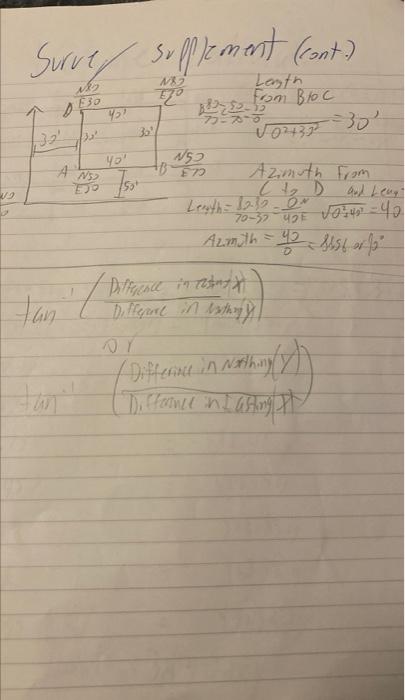 Survey supplement (cont.)
N80
E30
N80
E70
D
C
40'
30'
30'
30'
40'
A
N50
E30
B
N50
E70
50'
Length
From B to C
√0²+30² = 30'
Azimuth From
C to D and Leng
Length = 80-80
70-30
√0²+40² = 40
Azimuth = 40
0
tan⁻¹ (Difference in Easting(X)
Difference in Nothing(Y))
or
tan⁻¹ (Difference in Northing(Y)
Difference in Easting(X))